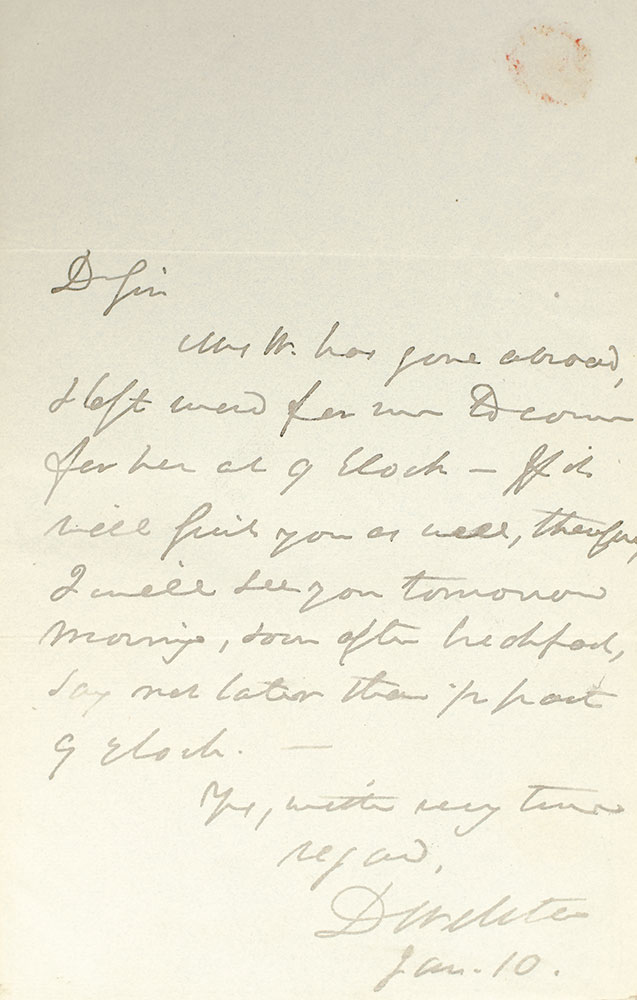 D Sir
Mrs W. has gone abroad,
& left word for me to come
for her at 9 Clock — If it
will suit you as well, therefore,
I will see you tomorrow
morning, soon after breakfast,
say not later than ½ past
9 Clock. —
Yrs, with very true
regard,
D Webster
Jan. 10.